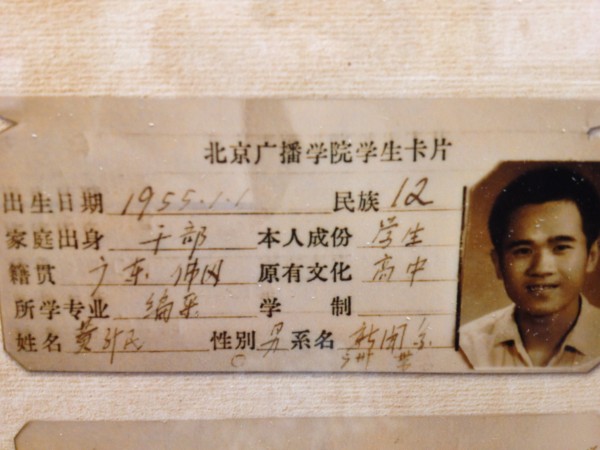 北京广播学院学生卡片
出生日期 1955.1.1 民族 汉
家庭出身 干部 本人成份 学生
籍贯 广东 佛冈 原有文化 高中
所学专业 编采 学制
姓名 黄 民 性别 男 系名 新闻系